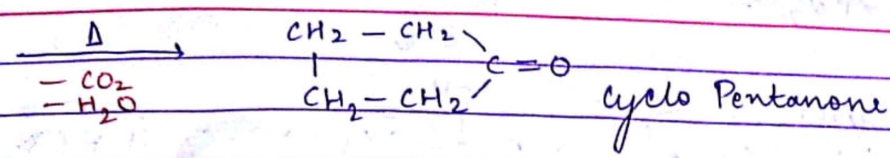 Δ
CH2 – CH2
C = O
– CO2
– H2O
CH2 – CH2
Cyclo Pentanone